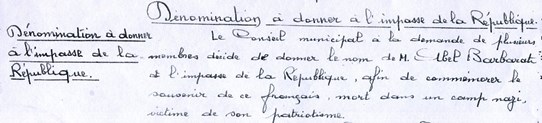 Dénomination à donner à l'impasse de la République.
Dénomination à donner
à l'impasse de la
République.
Le Conseil municipal à la demande de plusieurs
membres décide de donner le nom de M. Abel Barbarat
à l'impasse de la République, afin de commémorer le
souvenir de ce français, mort dans un camp nazi,
victime de son patriotisme.